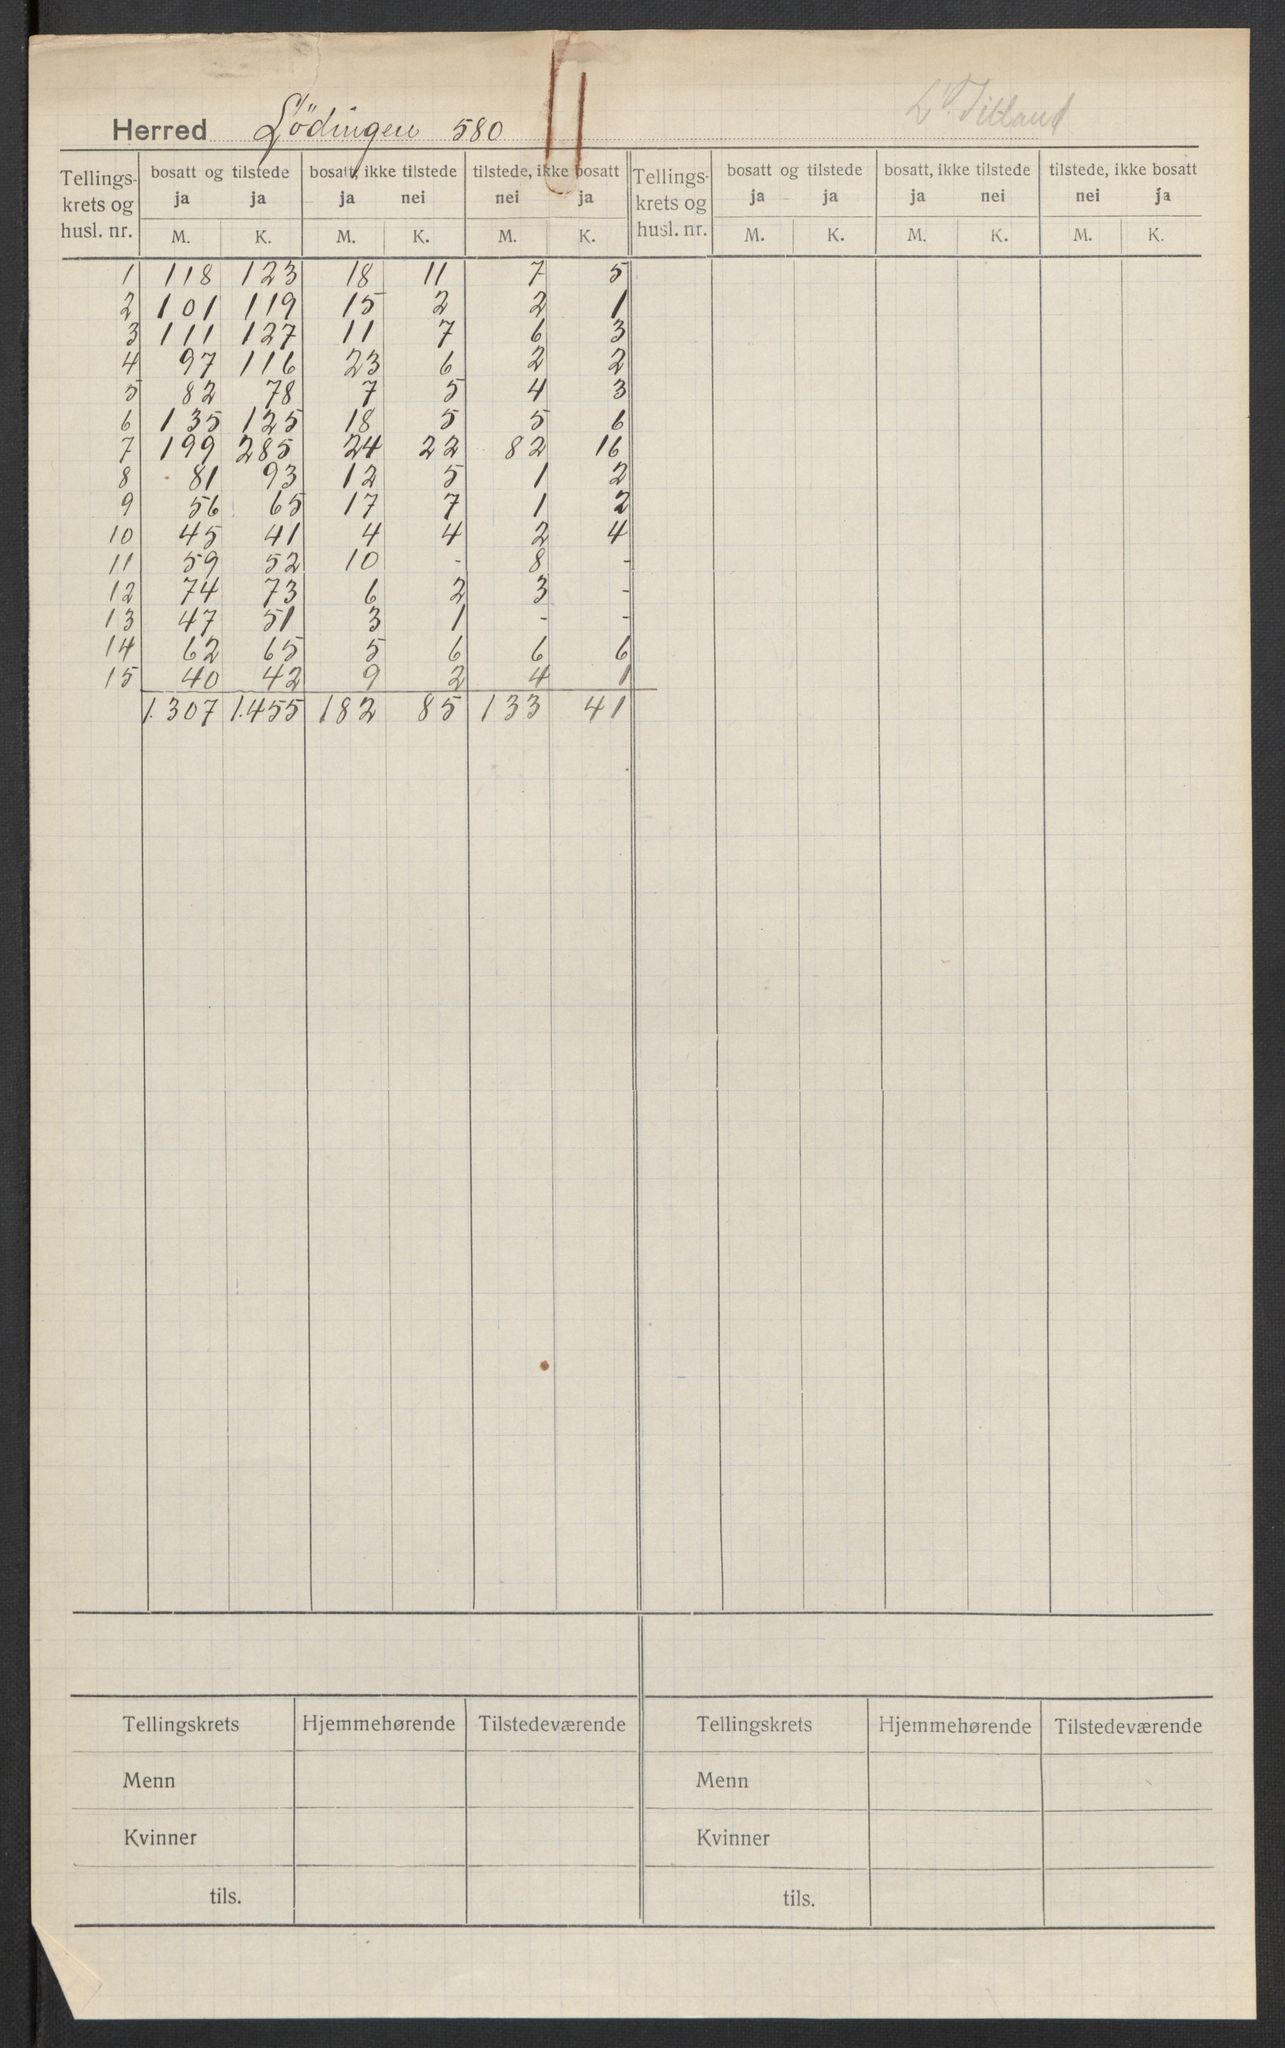 Herred Lödingen 580
Tellings- krets og husl. nr. | bosatt og tilstede | bosatt, ikke tilstede | tilstede, ikke bosatt | Tellings- krets og husl. nr. | bosatt og tilstede | bosatt, ikke tilstede | tilstede, ikke bosatt
ja ja | ja nei | nei ja | ja ja | ja nei | nei ja
M. K. | M. K. | M. K. | M. K. | M. K. | M. K.
1 118 123 18 11 7 5
2 101 119 15 2 2 1
3 111 127 11 7 6 3
4 97 116 23 6 2 2
5 82 78 7 5 4 3
6 135 125 18 5 5 6
7 199 285 24 22 82 16
8 81 93 12 5 1 2
9 56 65 17 7 1 2
10 45 41 4 4 2 4
11 59 52 10 - 8 -
12 74 73 6 2 3 -
13 47 51 3 1 - -
14 62 65 5 6 6 6
15 40 42 9 2 4 1
1.307 1.455 182 85 133 41
Tellingskrets Hjemmehørende Tilstedeværende Tellingskrets Hjemmehørende Tilstedeværende
Menn Menn
Kvinner Kvinner
tils. tils.